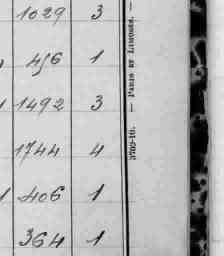 1029 3
456 1
1492 3
1744 4
406 1
364 1
3702-10. — PARIS ET LIMOGES. —